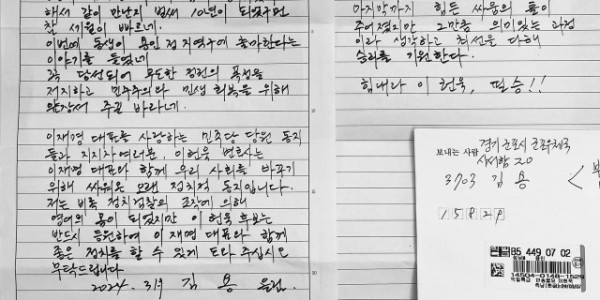 해서 같이 만난지 벌써 10년이 되었구먼
참 세월이 빠르네.
이번에 동생이 용인 정 지역구에 출마한다는
이야기를 들었네
꼭 당선되어 무도한 정권의 폭정을
저지하고 민주주의와 민생 회복을 위해
앞장서 주길 바라네.
이재명 대표를 사랑하는 민주당 당원 동지
들과 지지자여러분, 이헌욱 변호사는
이재명 대표와 함께 우리 사회를 바꾸기
위해 싸워온 오랜 정치적 동지입니다.
저는 비록 정치검찰의 조작에 의해
영어의 몸이 되었지만 이헌욱 후보는
반드시 등원하여 이재명 대표와 함께
좋은 정치를 할 수 있게 도와 주십시오
부탁드립니다
2024. 3.1 김 용 올림.
마지막까지 힘든 싸움의 몫이
주어졌지만 그만큼 의미있는 과정
이라 생각하고 최선을 다해
승리를 기원한다.
힘내라 이헌욱, 필승!!
보내는 사람 경기 군포시 군포우체국
사서함 20
3703 김 용
15829
B5 449 07 02